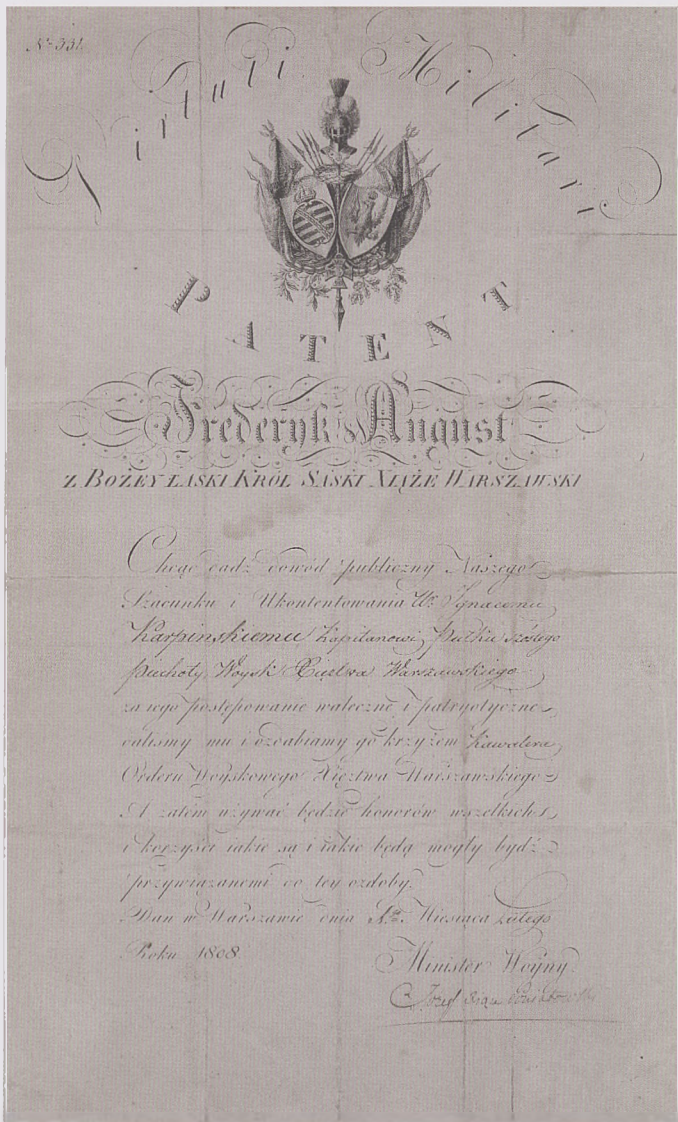 N° 331
Virtuti Militari
PATENT
Fryderyk August
Z BOŻEY ŁASKI KRÓL SASKI XIĄŻE WARSZAWSKI
Chcąc dadź dowód publiczny Naszego
Szacunku i Ukontentowania Ur Ignacemu
Karpinskiemu Kapitanowi Pułku szóstego
piechoty Woysk Xięstwa Warszawskiego
za iego postępowanie waleczne i patryotyczne
daliśmy mu i ozdabiamy go krzyżem Kawalera
Orderu Woyskowego Xięztwa Warszawskiego
A zatém używać będzie honorów wszelkich
i korzyści iakie są i iakie będą mogły bydź
przywiązanemi do tey ozdoby.
Dan w Warszawie dnia Miesiąca Lutego
Roku 1808
Minister Woyny
Józef Xiąże Poniatowski